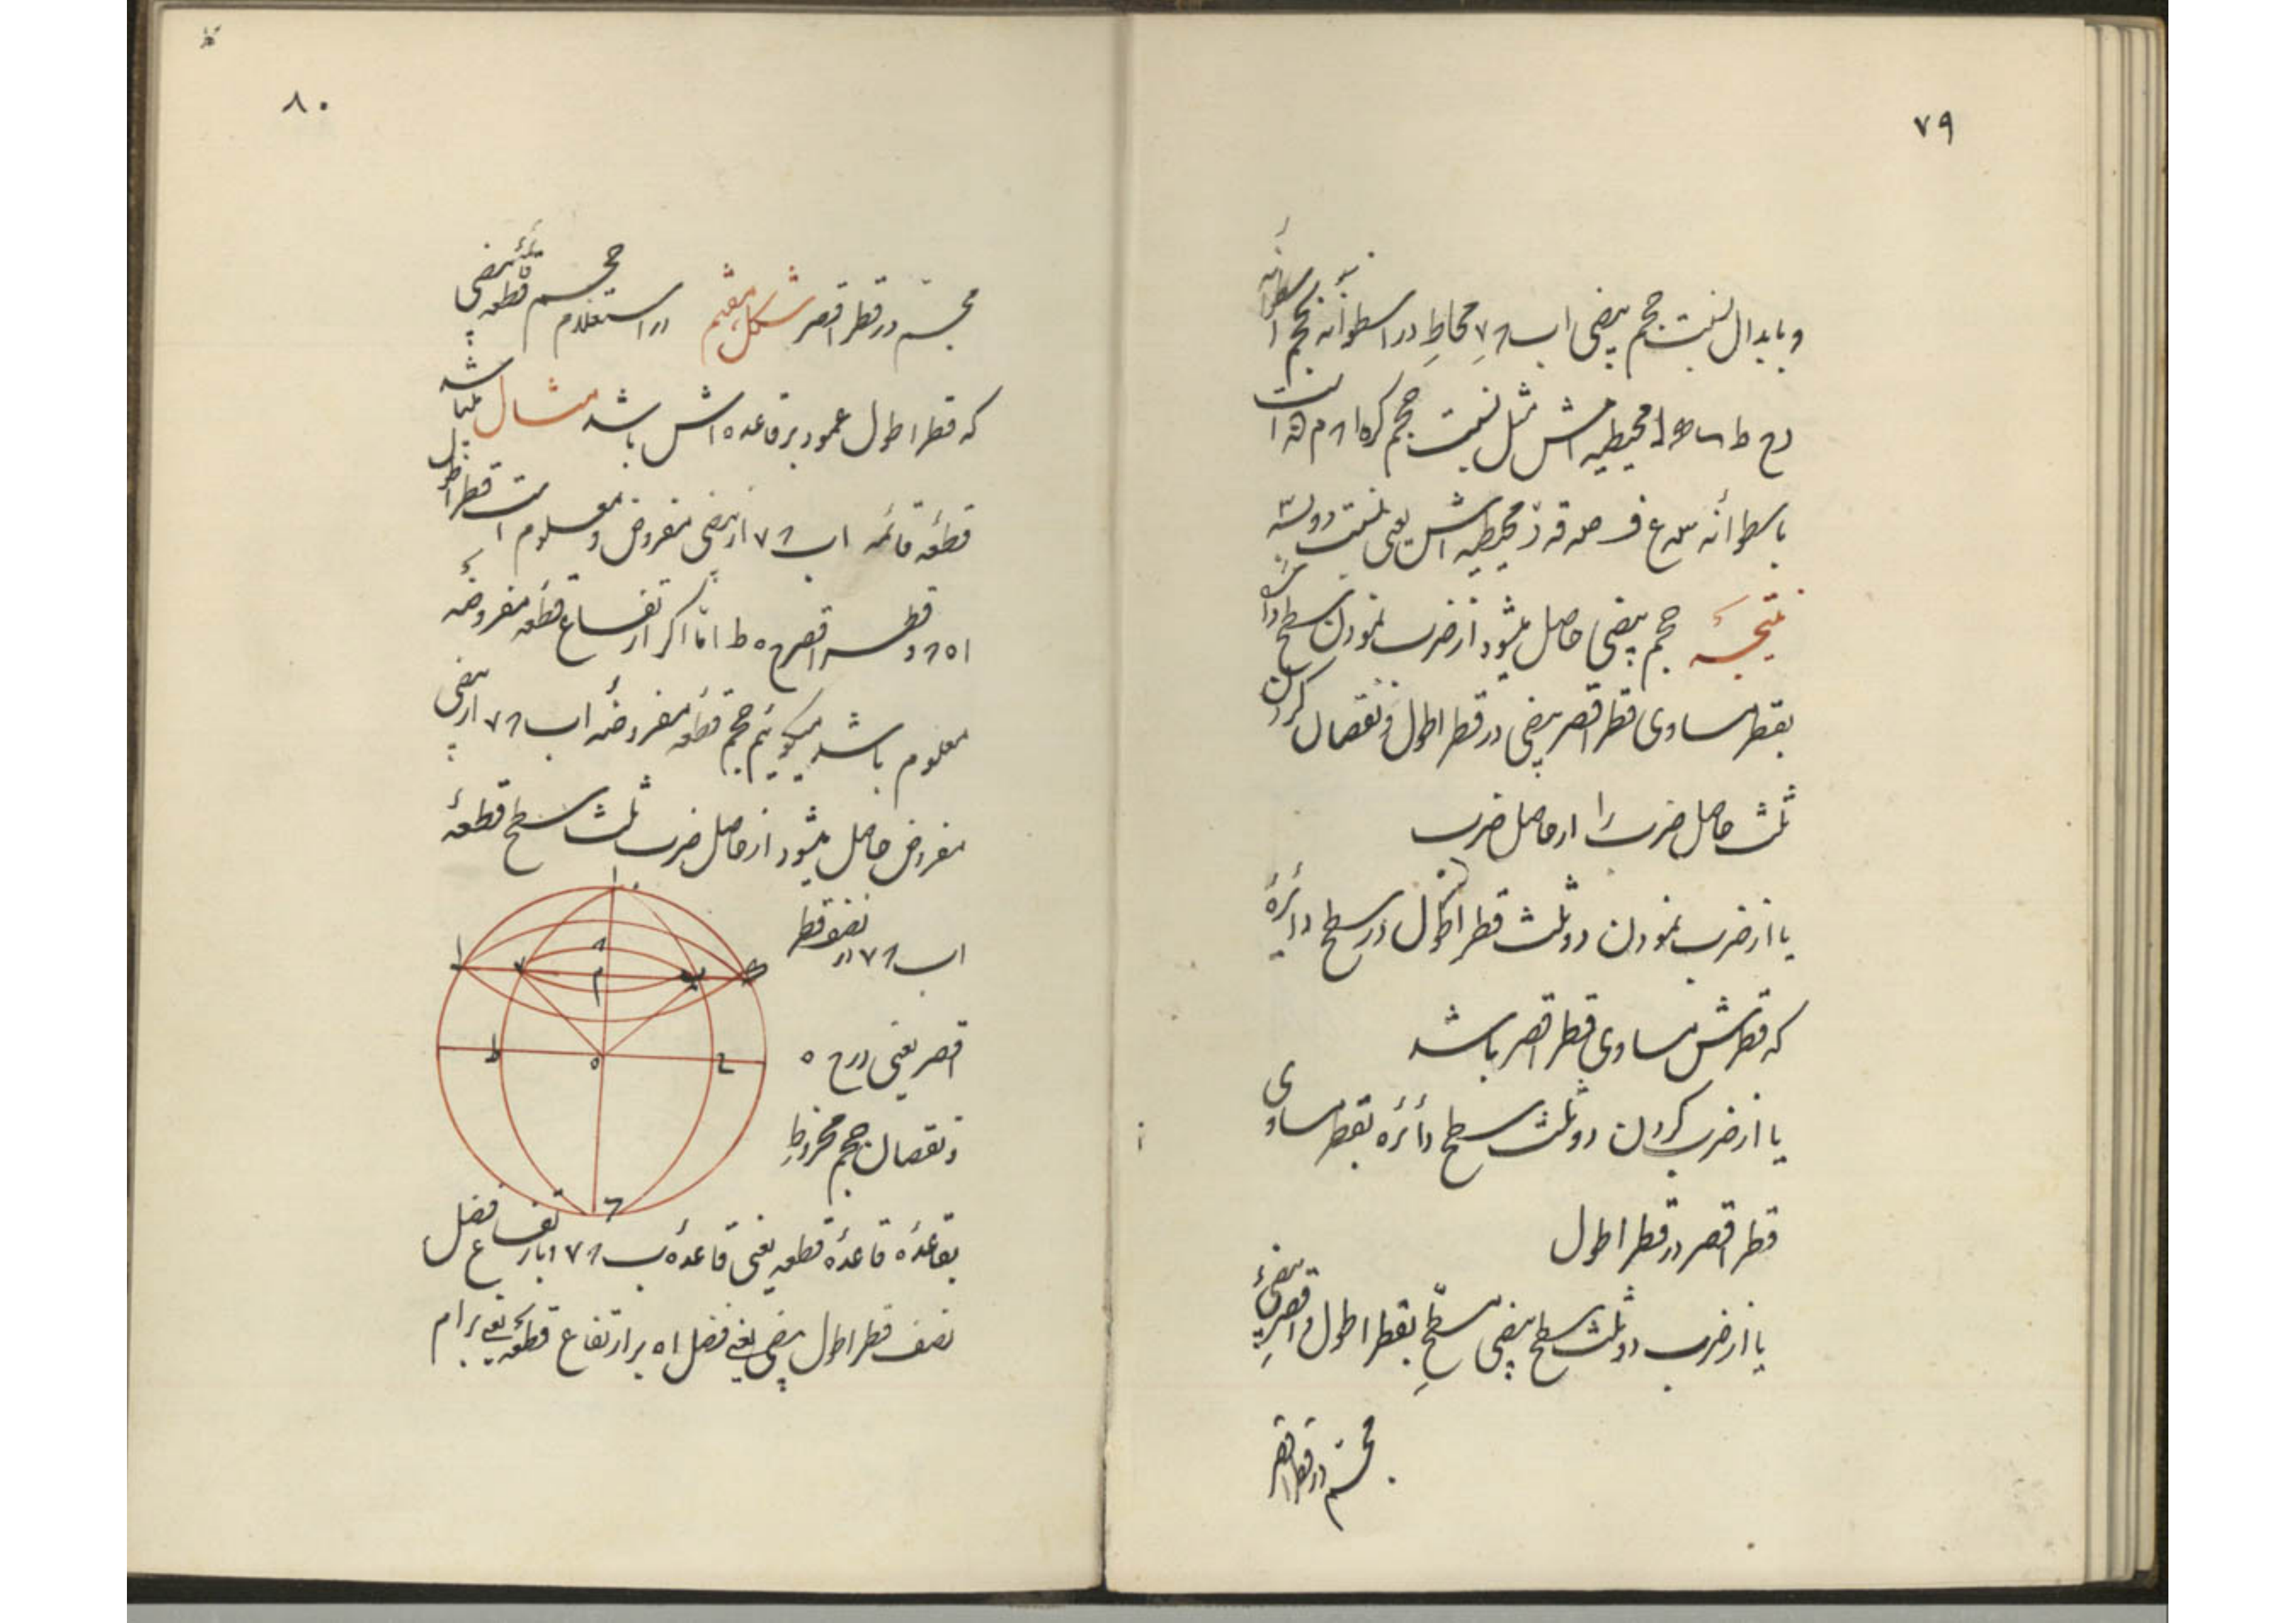 ۷۹
و بابدال نسبت حجم بیضی اب محاط در اسطوانه بحجم اسطوانه
محیطیه اش مثل نسبت حجم کره است
باسطوانه محیطیه اش یعنی نسبت دو بسه
نتیجهٔ حجم بیضی حاصل میشود از ضرب نمودن سطح دائرهٔ
بقطر مساوی قطر اقصر بیضی در قطر اطول و نقصان کردن
ثلث حاصل ضرب را از حاصل ضرب
یا از ضرب نمودن دو ثلث قطر اطول در سطح دائرهٔ
که قطرش مساوی قطر اقصر باشد
یا از ضرب کردن دو ثلث سطح دائره بقطر مساوی
قطر اقصر در قطر اطول
یا از ضرب دو ثلث سطح بیضی مسطّح بقطر اطول و اقصر بیضیٔ
مجسّم در قطر اقصر
۸۰
مجسّم در قطر اقصر شکل هفتم در استعلام حجم قطعهٔ بیضی
که قطر اطول عمود بر قاعده اش باشد مثال میباشد
قطعهٔ قائمه اب از بیضی مفروض و معلوم است قطر اطول
و قطر اقصر ح ه ط امّا اگر ارتفاع قطعهٔ مفروضه
معلوم باشد میگوئیم حجم قطعهٔ مفروضه اب از بیضی
مفروض حاصل میشود از حاصل ضرب ثلث سطح قطعهٔ
اب در نصف قطر
اقصر یعنی در ح ه
و نقصان حجم مخروط
بقاعدهٔ قاعدهٔ قطعه یعنی قاعدهٔ ب بارتفاع فضل
نصف قطر اطول بیضی یعنی فضل ا ه بر ارتفاع قطعه یعنی بر ام
ا
م
ه
ط
ح